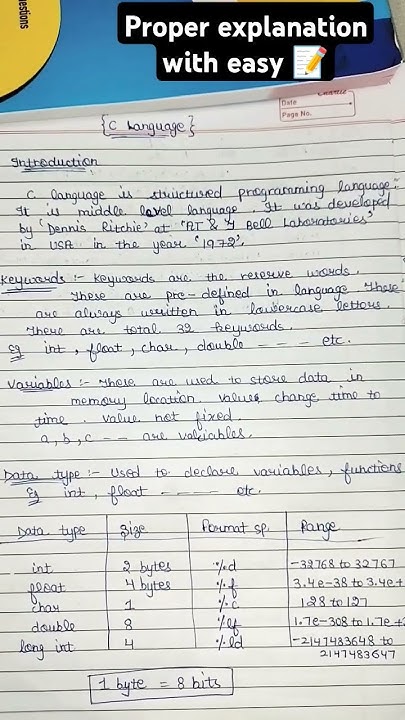 estions
Proper explanation
with easy 📝
Date
Page No.
{C Language}
Introduction
C language is structured programming language.
It is middle level language. It was developed
by 'Dennis Ritchie' at 'AT & T Bell Laboratories'
in USA in the year '1972'.
Keywords :- Keywords are the reserve words.
These are pre-defined in language These
are always written in lowercase letters.
There are total 32 keywords.
Eg int, float, char, double - - - etc.
Variables :- These are used to store data in
memory location. Value change time to
time. Value not fixed.
a, b, c - - are variables.
Data type :- Used to declare variables, functions
Eg int, float - - - - etc.
Data type Size Format sp. Range
int 2 bytes %d -32768 to 32767
float 4 bytes %f 3.4e-38 to 3.4e+
char 1 %c 128 to 127
double 8 %lf 1.7e-308 to 1.7e+
long int 4 %ld -2147483648 to
2147483647
1 byte = 8 bits